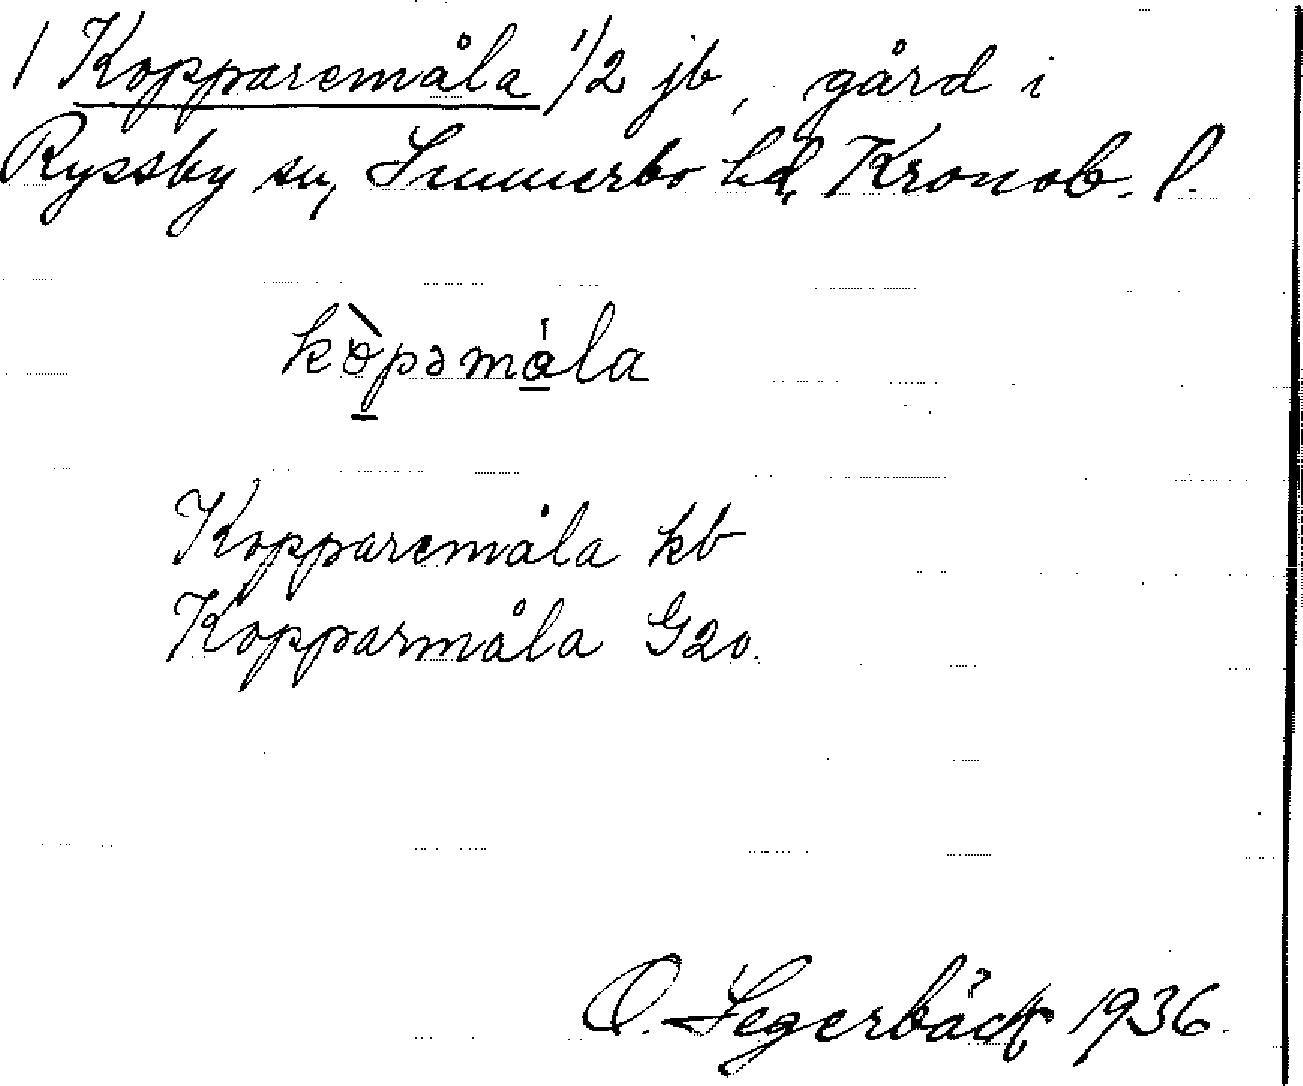 1 Kopparemåla 1/2 jb, gård i
Ryssby sn, Sunnerbo hd, Kronob. l.
kòpəmåla
Kopparemåla kb
Kopparmåla G20.
O. Segerbäck 1936.